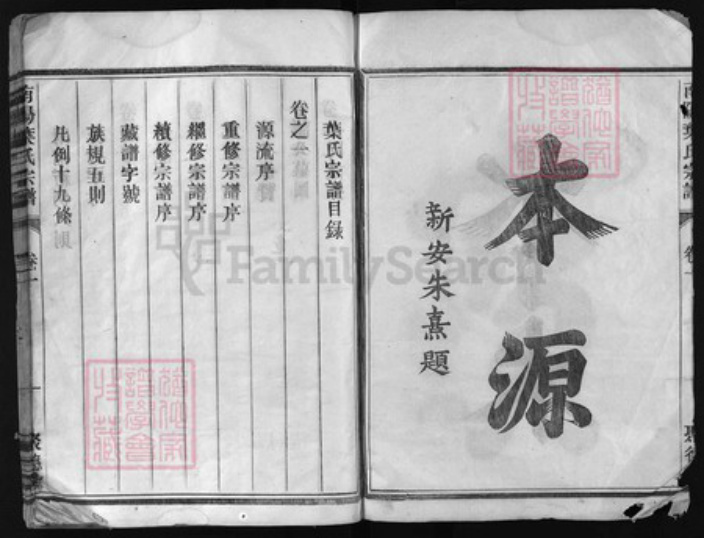 南陽葉氏宗譜
卷一
本源
新安朱熹題
葉氏宗譜目錄
卷之一
源流序
重修宗譜序
繼修宗譜序
續修宗譜序
藏譜字號
族規五則
凡例十九條
南陽葉氏宗譜
卷一
一
FamilySearch